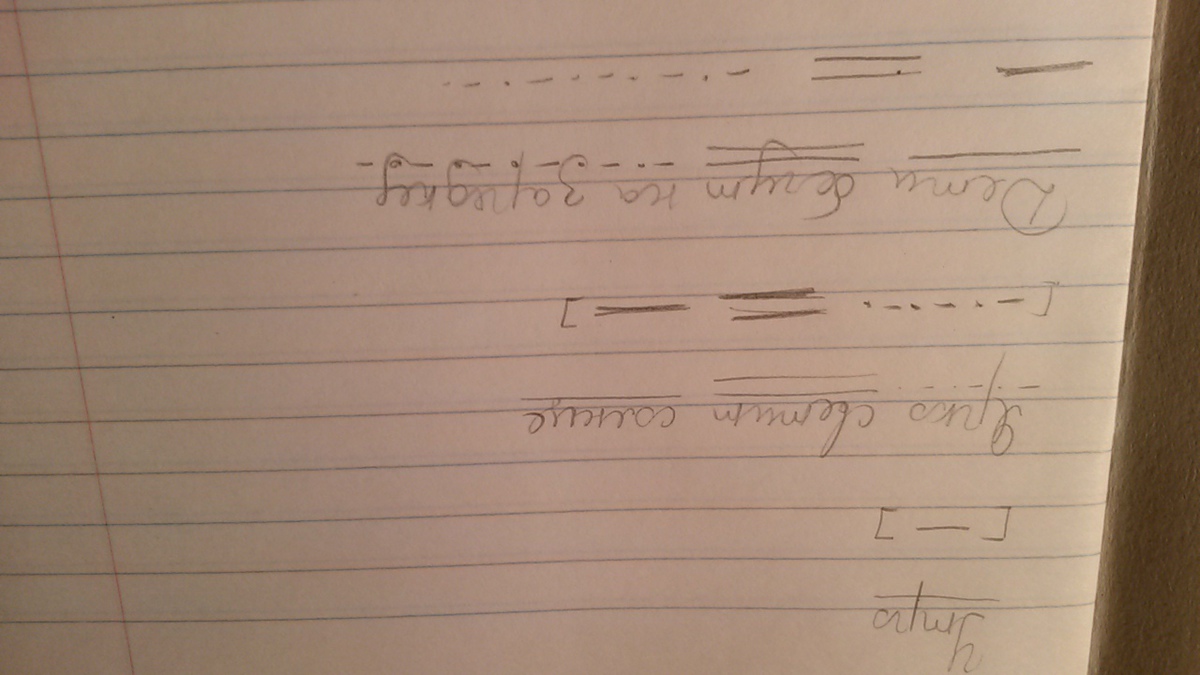 Утро
[ — ]
Ярко светит солнце
Дети бегут на зарядку